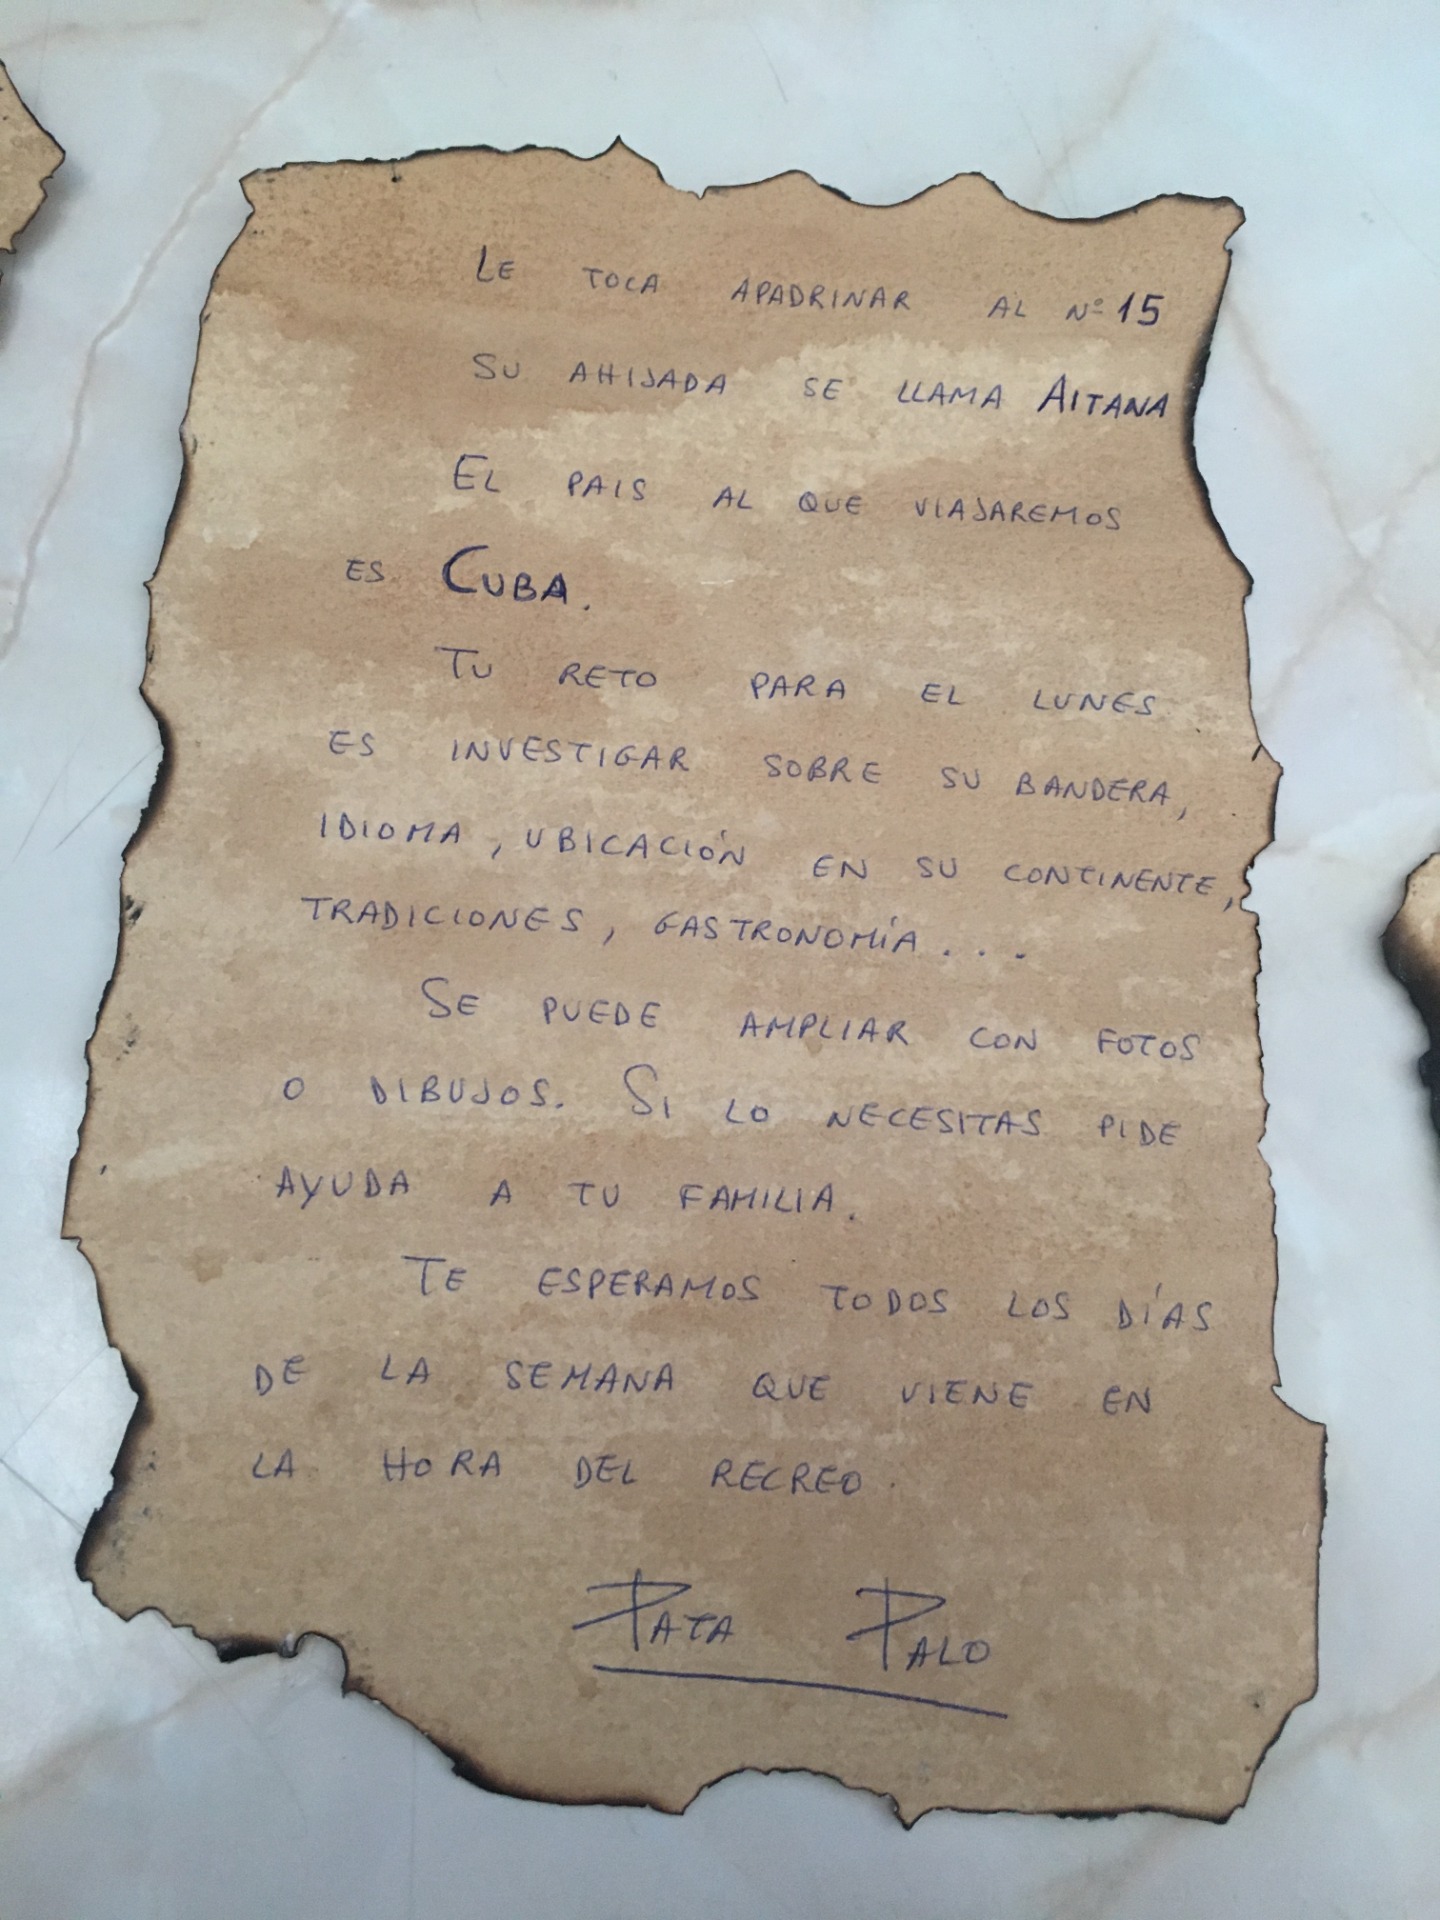 LE TOCA APADRINAR AL Nº 15
SU AHIJADA SE LLAMA AITANA
EL PAIS AL QUE VIAJAREMOS
ES CUBA.
TU RETO PARA EL LUNES
ES INVESTIGAR SOBRE SU BANDERA,
IDIOMA, UBICACIÓN EN SU CONTINENTE,
TRADICIONES, GASTRONOMÍA...
SE PUEDE AMPLIAR CON FOTOS
O DIBUJOS. SI LO NECESITAS PIDE
AYUDA A TU FAMILIA.
TE ESPERAMOS TODOS LOS DÍAS
DE LA SEMANA QUE VIENE EN
LA HORA DEL RECREO.
PATA PALO